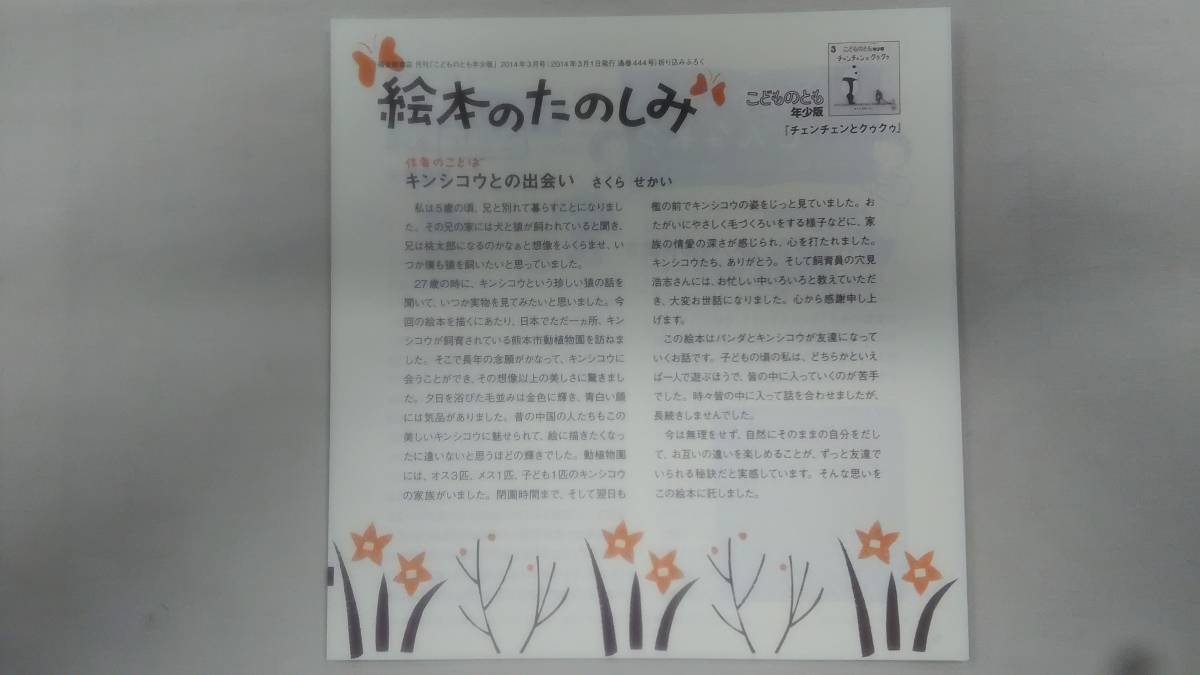 福音館書店 月刊「こどものとも年少版」2014年3月号(2014年3月1日発行 通巻444号)折り込みふろく
絵本のたのしみ
3 こどものとも年少版
チェンチェンとクゥクゥ
こどものとも
年少版
『チェンチェンとクゥクゥ』
作者のことば
キンシコウとの出会い さくら せかい
私は5歳の頃、兄と別れて暮らすことになりまし
た。その兄の家には犬と猿が飼われていると聞き、
兄は桃太郎になるのかなぁと想像をふくらませ、い
つか僕も猿を飼いたいと思っていました。
27歳の時に、キンシコウという珍しい猿の話を
聞いて、いつか実物を見てみたいと思いました。今
回の絵本を描くにあたり、日本でただ一ヵ所、キン
シコウが飼育されている熊本市動植物園を訪ねま
した。そこで長年の念願がかなって、キンシコウに
会うことができ、その想像以上の美しさに驚きまし
た。夕日を浴びた毛並みは金色に輝き、青白い顔
には気品がありました。昔の中国の人たちもこの
美しいキンシコウに魅せられて、絵に描きたくなっ
たに違いないと思うほどの輝きでした。動植物園
には、オス3匹、メス1匹、子ども1匹のキンシコウ
の家族がいました。閉園時間まで、そして翌日も
檻の前でキンシコウの姿をじっと見ていました。お
たがいにやさしく毛づくろいをする様子などに、家
族の情愛の深さが感じられ、心を打たれました。
キンシコウたち、ありがとう。そして飼育員の穴見
浩志さんには、お忙しい中いろいろと教えていただ
き、大変お世話になりました。心から感謝申し上
げます。
この絵本はパンダとキンシコウが友達になって
いくお話です。子どもの頃の私は、どちらかといえ
ば一人で遊ぶほうで、皆の中に入っていくのが苦手
でした。時々皆の中に入って話を合わせましたが、
長続きしませんでした。
今は無理をせず、自然にそのままの自分をだし
て、お互いの違いを楽しめることが、ずっと友達で
いられる秘訣だと実感しています。そんな思いを
この絵本に託しました。